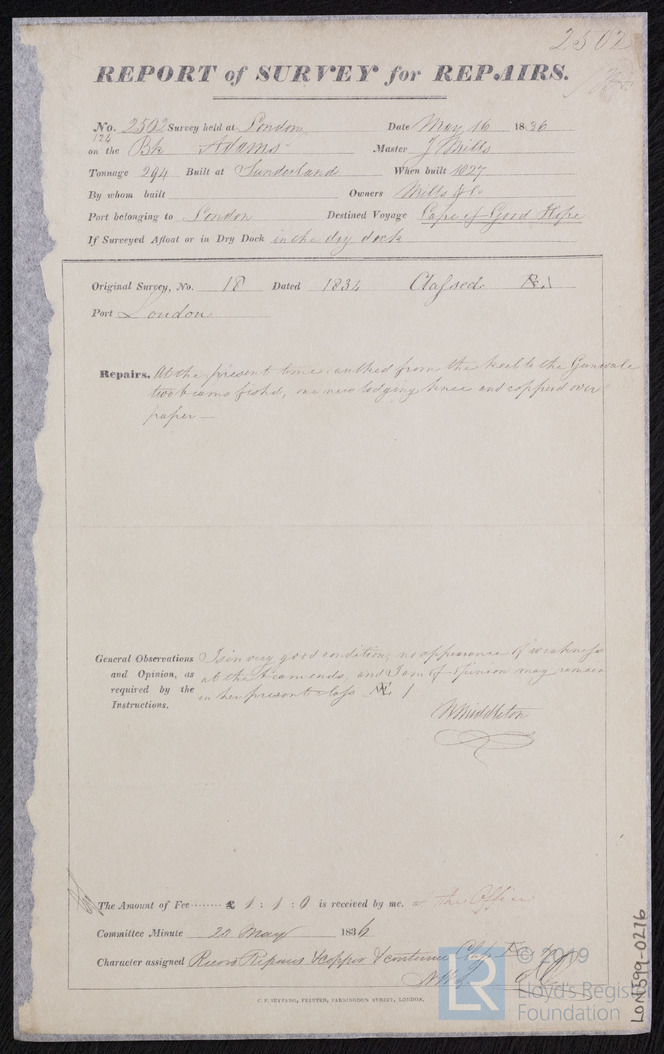 2502
REPORT of SURVEY for REPAIRS.
No. 2502 Survey held at London Date May 16 1836
124
on the Bk Adams Master J Mills
Tonnage 294 Built at Sunderland When built 1827
By whom built Owners Mills & Co
Port belonging to London Destined Voyage Cape of Good Hope
If Surveyed Afloat or in Dry Dock in the dry dock
Original Survey, No. 18 Dated 1834 Classed Æ 1
Port London
Repairs. At the present time caulked from the keel to the Gunwale
two beams fishd, one new lodging knee and copperd over
paper —
General Observations and Opinion, as required by the Instructions.
Is in very good condition, no appearance of weakness
at the beam ends, and I am of opinion may remain
in her present class Æ 1
W Middleton
The Amount of Fee ........ £ 1 : 1 : 0 is received by me. at the Office
Committee Minute 20 May 1836
Character assigned Record Repairs & copper & continue Class Æ
C. F. SEYFANG, PRINTER, FARRINGDON STREET, LONDON.
LON599-0216
LR
© 2019
Lloyd's Register
Foundation